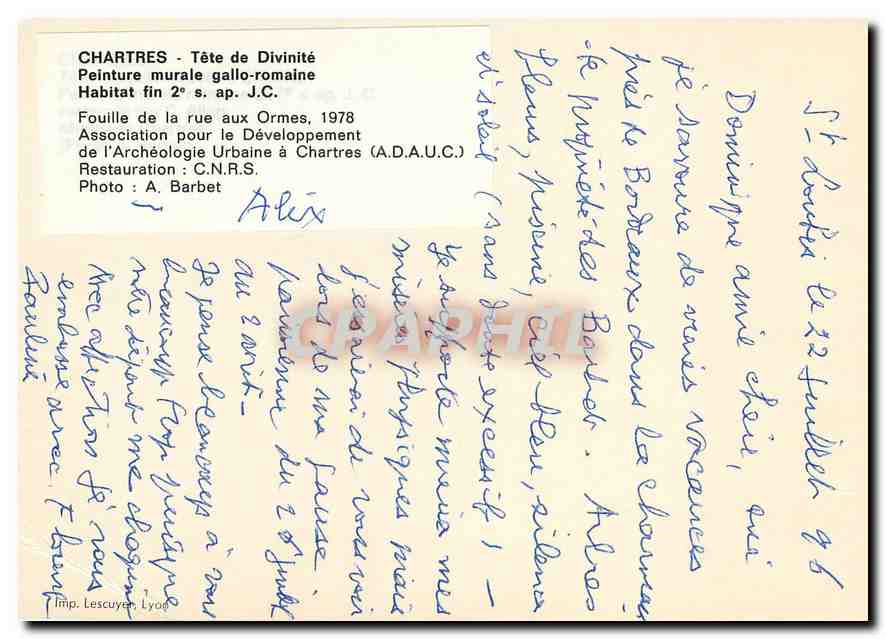 CHARTRES - Tête de Divinité
Peinture murale gallo-romaine
Habitat fin 2e s. ap. J.C.
Fouille de la rue aux Ormes, 1978
Association pour le Développement
de l'Archéologie Urbaine à Chartres (A.D.A.U.C.)
Restauration : C.N.R.S.
Photo : A. Barbet
Alix
St- le 22 Juillet 96
Dominique amie chère, oui
je savoure de vraies vacances
près de Bordeaux dans la
propriété des Barbet. Arbres
fleurs, piscine, ciel bleu, silence
et soleil (sans doute excessif) -
Je supporte mieux mes
misères physiques mais
de vous voir
lors de ma pause
parisienne du 28 Juillet
au 2 Août -
Je pense beaucoup à vous
beaucoup trop puisque
votre départ me chagrine
Avec affection je vous
embrasse avec
Pauline
Imp. Lescuyer, Lyon
CPAPHIL